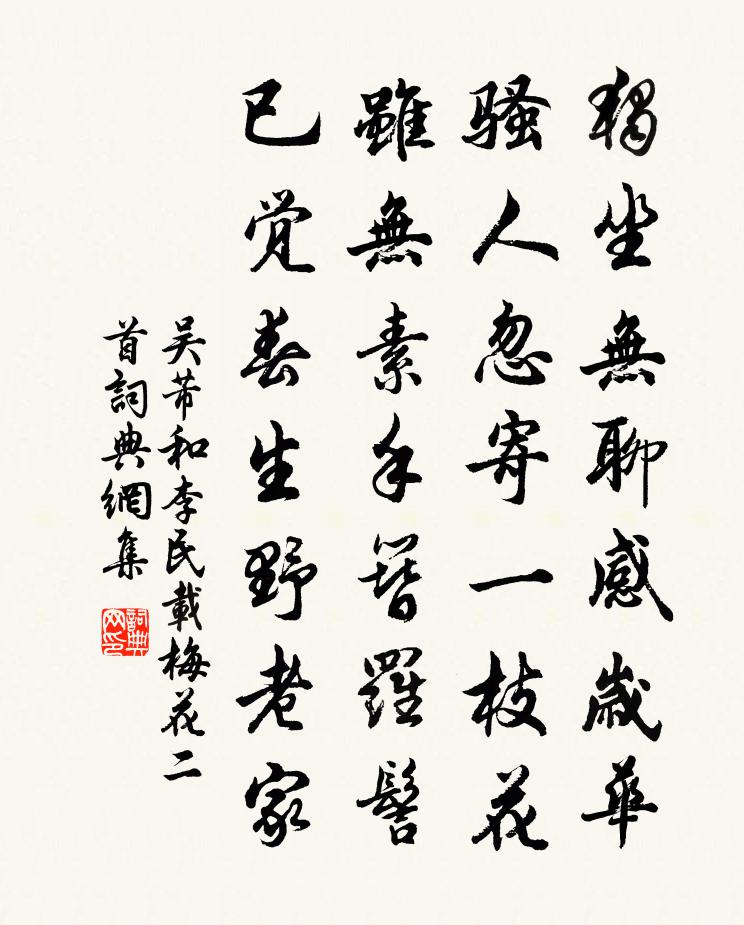 獨坐無聊感歲華
騷人忽寄一枝花
雖無素手簪羅髻
已觉春生野老家
吴芾和李民載梅花二
首詞典網集
詞典网印